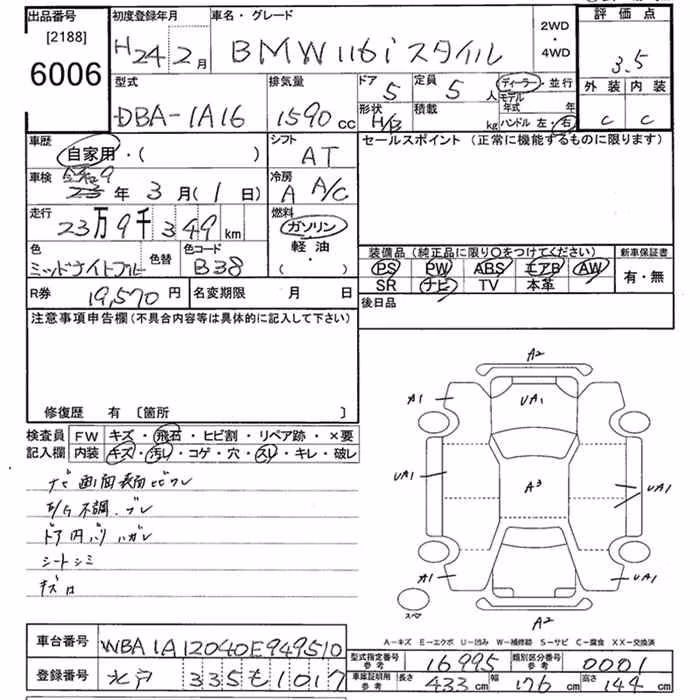 出品番号 初度登録年月 車名・グレード 2WD・4WD 評価点
[2188]
6006 H24 2月 BMW 116i スタイル 3.5
型式 排気量 ドア 定員 ディーラー・並行 外装 内装
DBA-1A16 1590cc 5 5人 モデル年式 年
形状 積載 ハンドル 左・右 C C
H/B kg
車歴 シフト セールスポイント (正常に機能するものに限ります)
自家用・( ) AT
車検 令和9年 3月(1日) 冷房
A A/C
走行 燃料
23万9千349km ガソリン
軽油
( ・ )
色 色替 色コード
ミッドナイトブルー B38
装備品 (純正品に限り○をつけてください) 新車保証書
PS PW ABS エアB AW 有・無
SR ナビ TV 本革
R券 19,570円 名変期限 月 日 後日品
注意事項申告欄(不具合内容等は具体的に記入して下さい)
修復歴 有 〔箇所 〕
検査員 FW キズ・飛石・ヒビ割・リペア跡・×要
記入欄 内装 キズ・汚レ・コゲ・穴・スレ・キレ・破レ
ナビ画面表面ヒビワレ
不調.ブレ
ドア内バリハガレ
シートシミ
A2
A1 UA1 A1
UA1 A3 UA1
A1 UA1
スペア A2
A-キズ E-エクボ U-凹み W-補修跡 S-サビ C-腐食 XX-交換済
車台番号 WBA1A12040E949510
型式指定番号 参考 16995 類別区分番号 参考 0001
登録番号 水戸 335 も 1017
車庫証明用 参考 長さ 433cm 幅 176cm 高さ 144cm